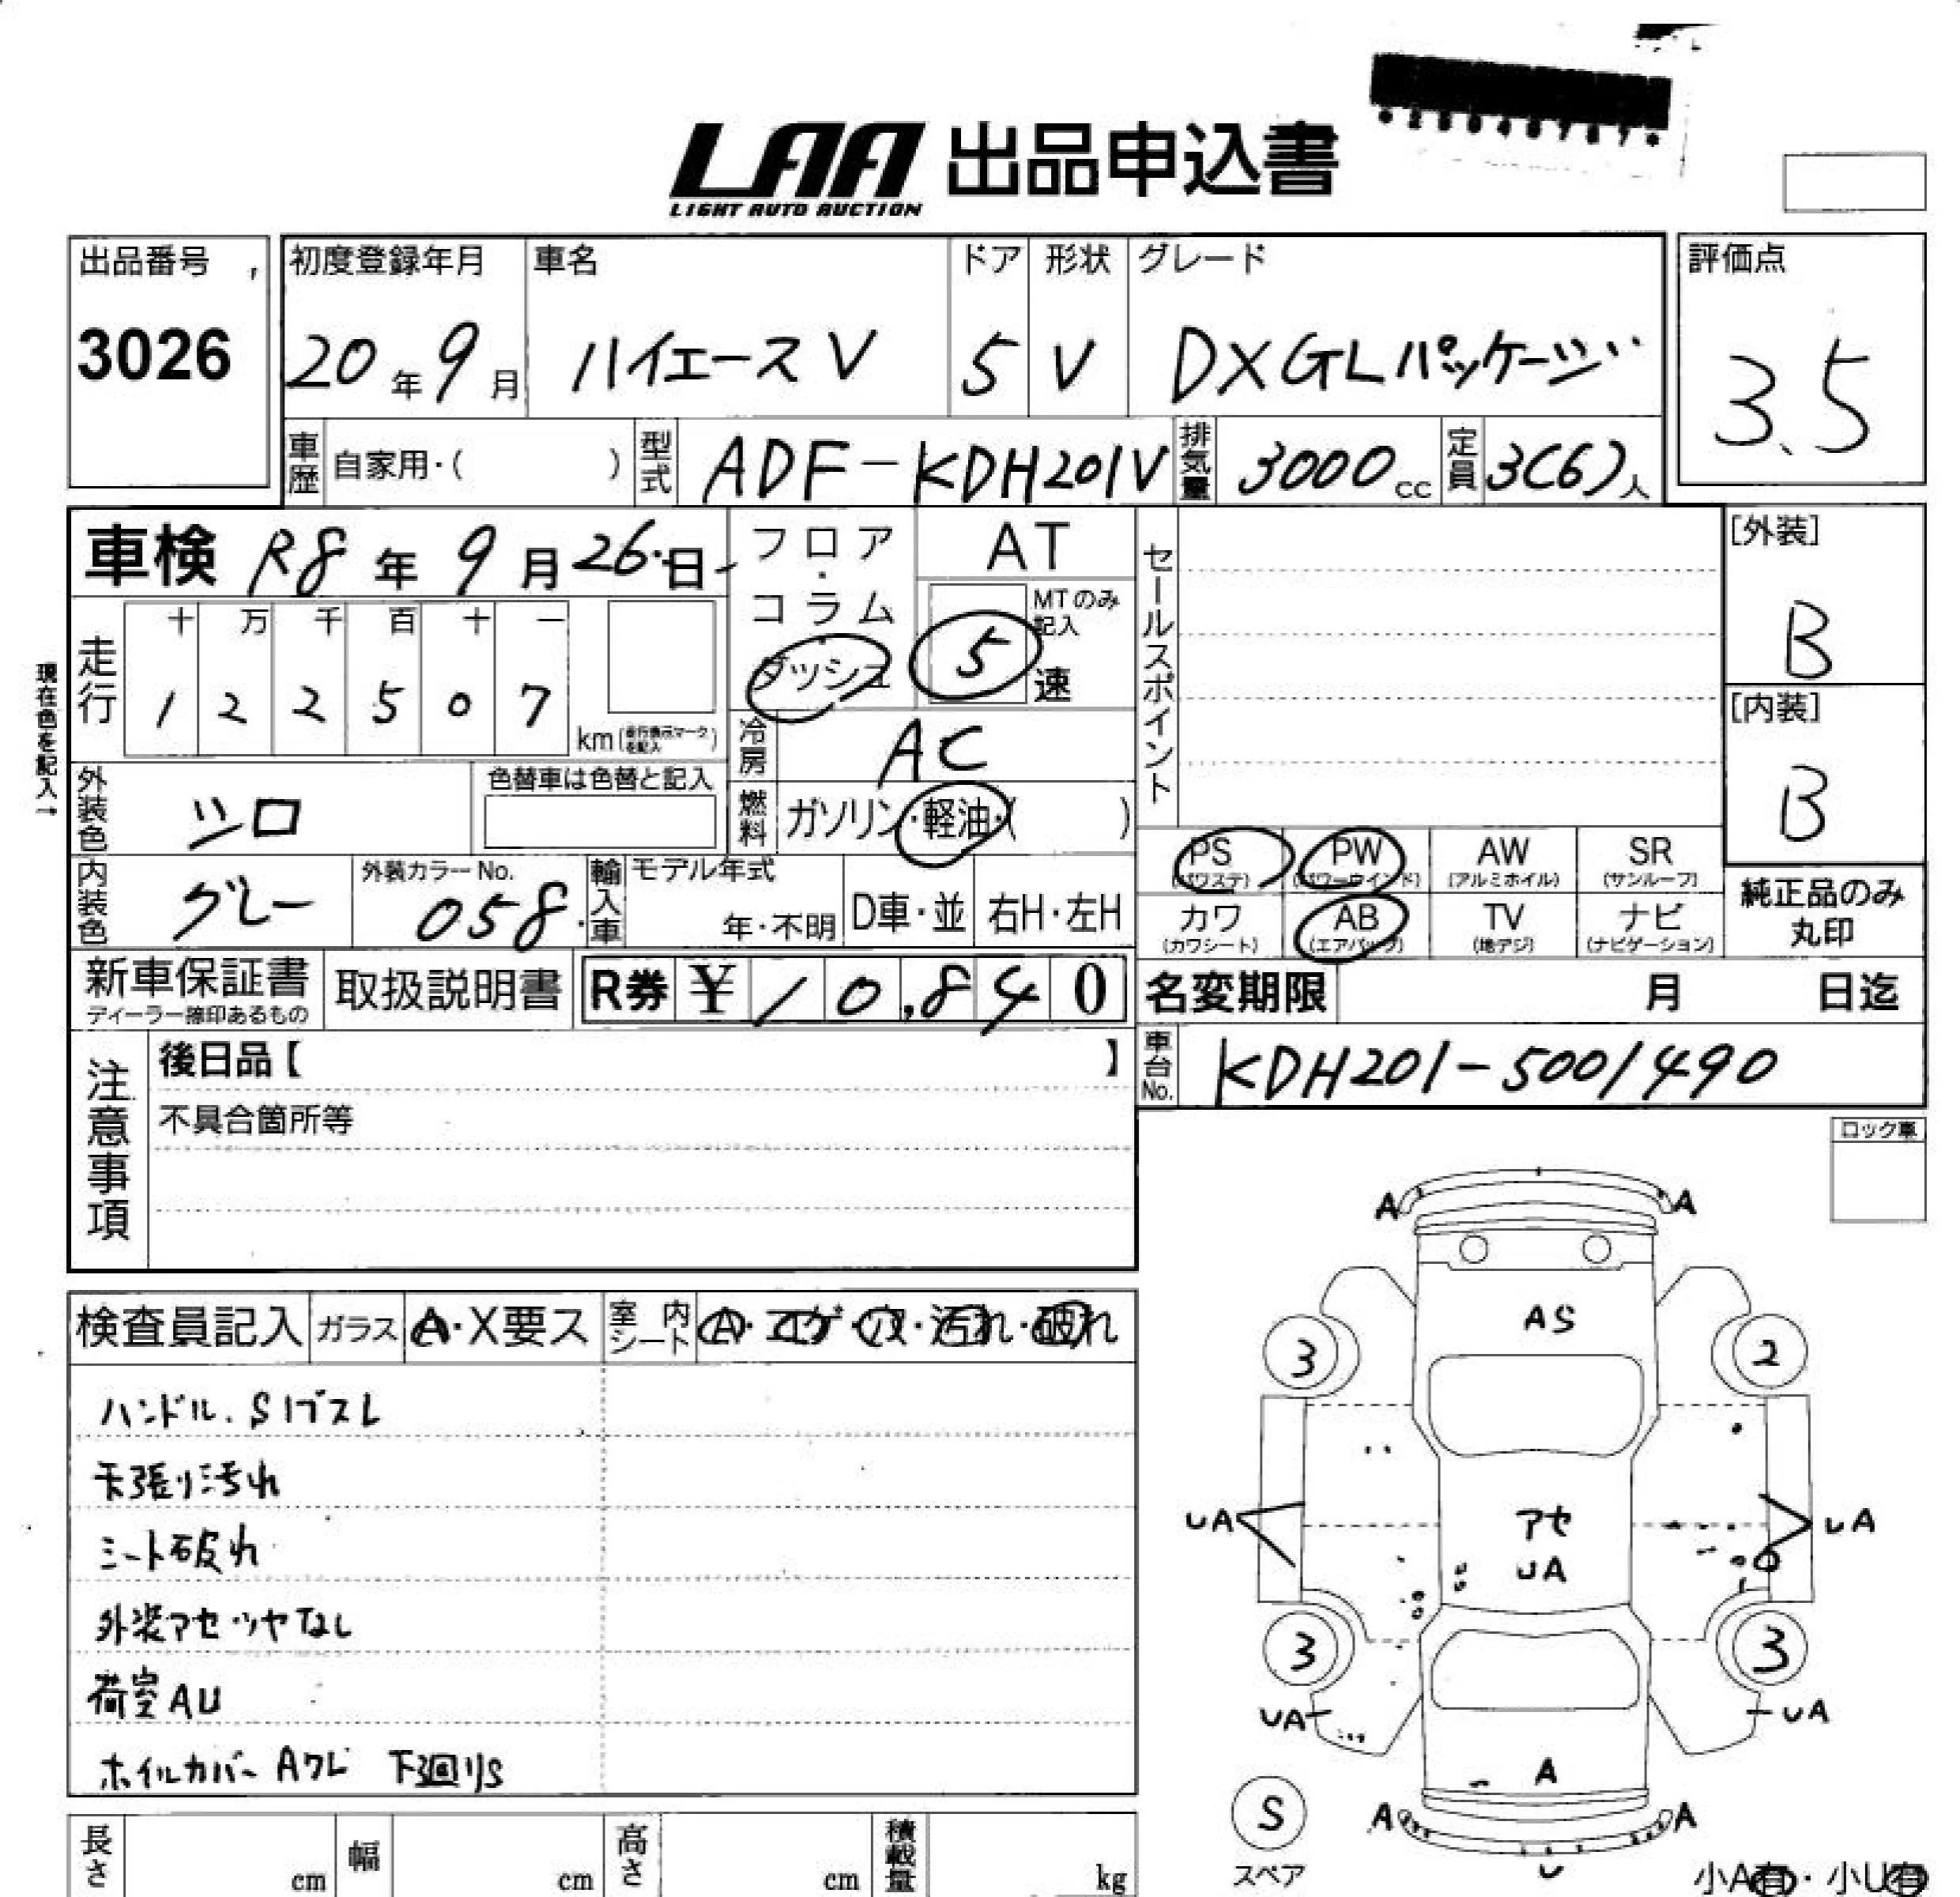 LAA 出品申込書
LIGHT AUTO AUCTION
出品番号
3026
初度登録年月
20年9月
車名
ハイエースV
ドア
5
形状
V
グレード
DXGLパッケージ
評価点
3.5
車歴 自家用・( )
型式 ADF-KDH201V
排気量 3000cc
定員 3(6)人
車検 R8年9月26日
フロア・コラム・ダッシュ
AT
MTのみ記入
5速
セールスポイント
[外装]
B
[内装]
B
現在色を記入→
走行
十 万 千 百 十 一
1 2 2 5 0 7
km(走行表示マークを記入)
冷房 AC
外装色 シロ
色替車は色替と記入
燃料 ガソリン・軽油・( )
内装色 グレー
外装カラーNo.
058
輸入車
モデル年式
年・不明
D車・並
右H・左H
PS (パワステ)
PW (パワーウインド)
AW (アルミホイル)
SR (サンルーフ)
カワ (カワシート)
AB (エアバック)
TV (地デジ)
ナビ (ナビゲーション)
純正品のみ丸印
新車保証書
ディーラー捺印あるもの
取扱説明書
R券 ¥10,840
名変期限 月 日迄
車台No. KDH201-5001490
注意事項
後日品【 】
不具合箇所等
ロック車
検査員記入
ガラス A・X要ス
室内シート A・コゲ・穴・汚れ・破れ
ハンドル.S1ブスレ
天張り汚れ
シート破れ
外装アセ ツヤなし
荷室AU
ホイルカバーAワレ 下廻りS
A A
AS
3 2
UA UA
アセ
UA
3 3
UA UA
A
S
スペア
A A
U
小A有・小U有
長さ cm
幅 cm
高さ cm
積載量 kg